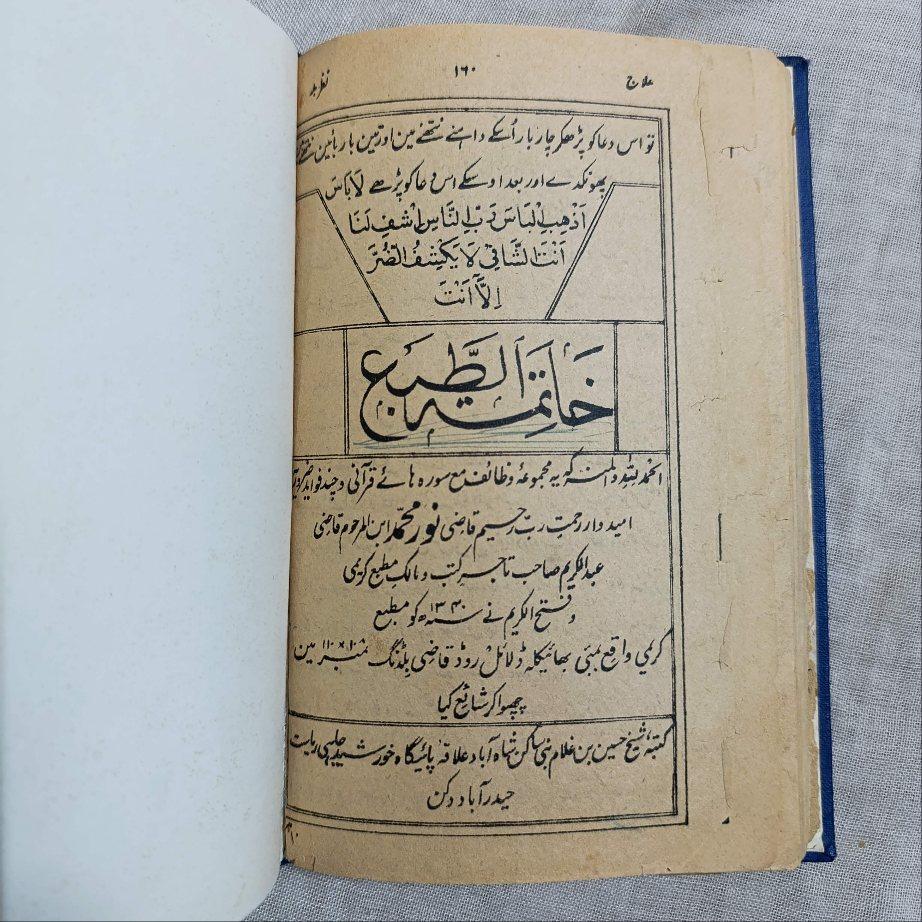 علاج ۱۶۰ نظر بد
تو اس دعا کو پڑھکر چار بار اُسکے داہنے نتھنے مین اور تین بار بائین نتھنے
پھونکدے اور بعد اوسکے اس دعا کو پڑھے لَا بَاسَ
اَذْهِبِ الْبَاسَ رَبَّ النَّاسِ اشْفِ لَنَا
اَنْتَ الشَّافِیْ لَا یَکْشِفُ الضُّرَّ
اِلَّا اَنْتَ
خَاتِمَۃُ الطَّبَعِ
الحمد للہ والمنہ کہ یہ مجموعۂ وظائف مع سورہ ہائے قرآنی و چند فواید
امیدوار رحمتِ ربِّ رحیم قاضی نور محمد ابن المرحوم قاضی
عبدالکریم صاحب تاجر کتب و مالک مطبع کریمی
و فتح الکریم نے ۱۳۴۰ سنہ ھ کو مطبع
کریمی واقع بمبئی بھائیکلہ ڈلائل روڈ قاضی بلڈنگ نمبر ۱۰۸×۱۱۰ مین
چھپوا کر شایع کیا
کتبہ شیخ حسین بن غلام نبی ساکن شاہ آباد علاقہ پائیگاہ خورشید جاہی ریاست
حیدرآباد دکن